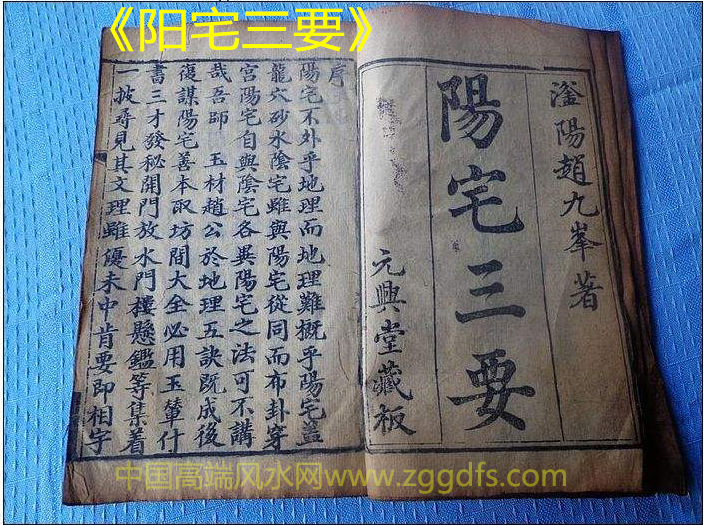 《阳宅三要》
滏陽趙九峯著
陽宅三要
元興堂藏板
序
陽宅不外乎地理而地理難概乎陽宅蓋
龍穴砂水陰宅雖與陽宅從同而布卦穿
宮陽宅自與陰宅各異陽宅之法可不講
哉吾師玉材趙公於地理五訣既成後
復謀陽宅善本取坊間大全必用玉輦什
書三才發秘開門放水門樓懸鑑等集着
一披尋見其文理雖優未中肯要即相宇
中国高端风水网www.zggdfs.com